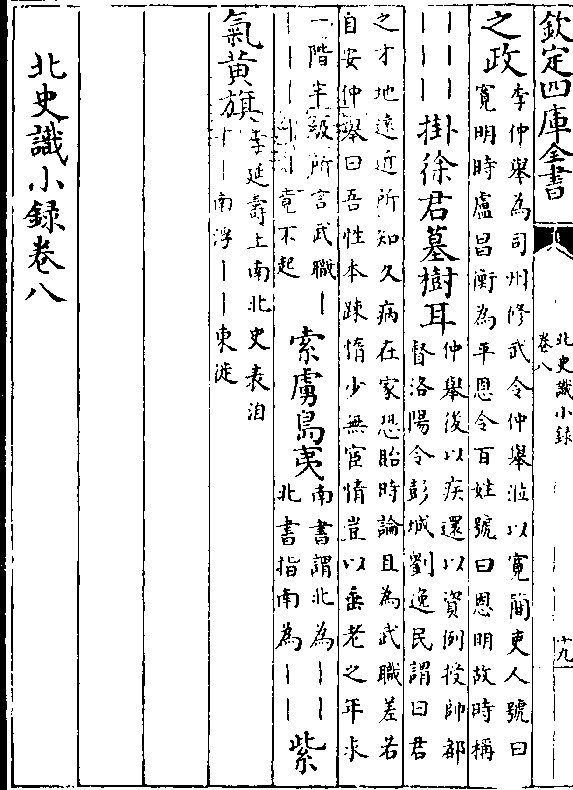 欽定四庫全書
北史識小録
卷八
十九
之政
李仲舉為司州修武令仲舉涖以寛簡吏人號曰
寛明時盧昌衡為平恩令百姓號曰恩明故時稱
｜｜｜｜
掛徐君墓樹耳
仲舉後以疾還以資例授帥都
督洛陽令彭城劉逸民謂曰君
之才地遠近所知久病在家恐貽時論且為武職差若
自安仲舉曰吾性本踈惰少無宦情豈以垂老之年求
一階半級所言武職｜
｜｜｜｜｜竟不起
索虜島夷
南書謂北為｜｜
北書指南為｜｜
紫
氣黄旗
李延壽上南北史表洎
于｜｜南浮｜｜東徙
北史識小録卷八